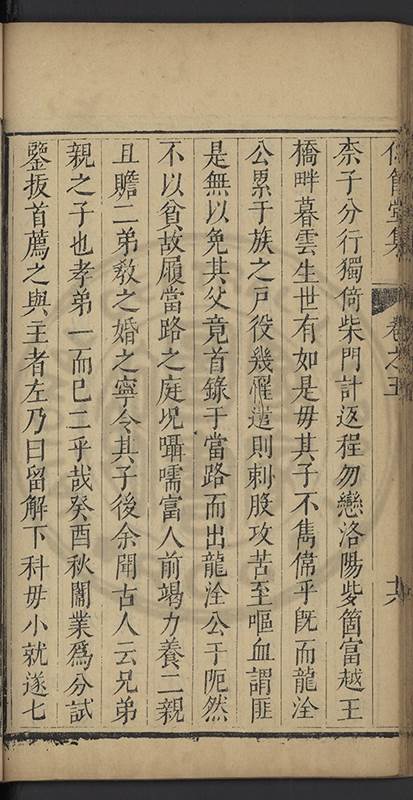 堂集
卷之五
十六
柰子分行獨倚柴門計返程勿戀洛陽些箇富越王
橋畔暮雲生世有如是毋其子不雋偉乎既而龍洤
公累于族之戸役幾罹遣則刺股攻苦至嘔血謂匪
是無以免其父竟首錄于當路而出龍洤公于阨然
不以貧故履當路之庭況囁嚅富人前竭力養二親
且贍二弟教之婚之寧令其子後余聞古人云兄弟
親之子也孝弟一而巳二乎哉癸酉秋闈業爲分試
鑒拔首薦之與主者左乃曰留解下科毋小就遂七